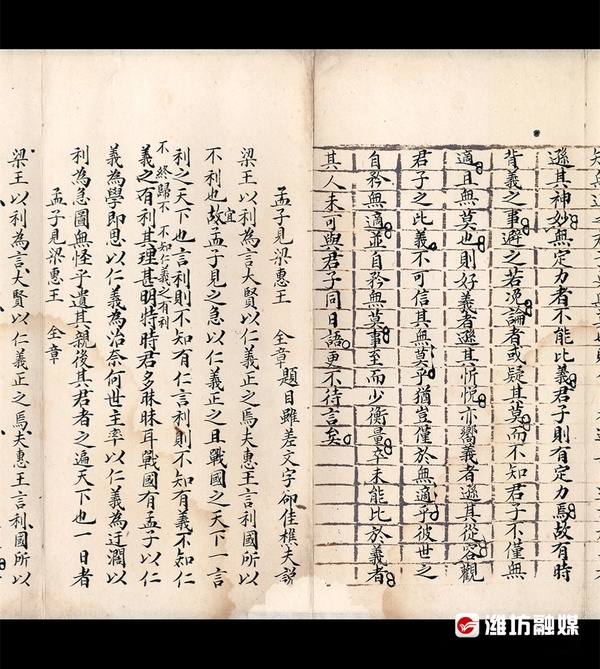 遜其神妙無定力者不能比義君子則有定力焉故有時
背義之事避之若論者或疑其莫而不知君子不僅無
適且無莫也則好義者遜其忻悅亦嚮義者遜其從容觀
君子之比義不可信其無莫乎猶豈僅於無適乎彼世之
自矜無適並自矜無莫事至而少衡量卒未能比於義者
其人未可與君子同日語更不待言矣
孟子見梁惠王 全章 題目雖差文字卻佳樵夫說
梁王以利為言大賢以仁義正之焉夫惠王言利國所以
不利也故孟子見之急以仁義正之且戰國之天下一言
宜
利之天下也言利則不知有仁言利則不知有義不知仁
不終歸不 不知仁義之有利
義之有利其理甚明特時君多昧昧耳戰國有孟子以仁
義為學即思以仁義為治奈何世主率以仁義為迂濶以
利為急圖無怪乎遺其親後其君者之遍天下也一日者
孟子見梁惠王 全章
梁王以利為言大賢以仁義正之焉夫惠王言利國所以
濰坊融媒